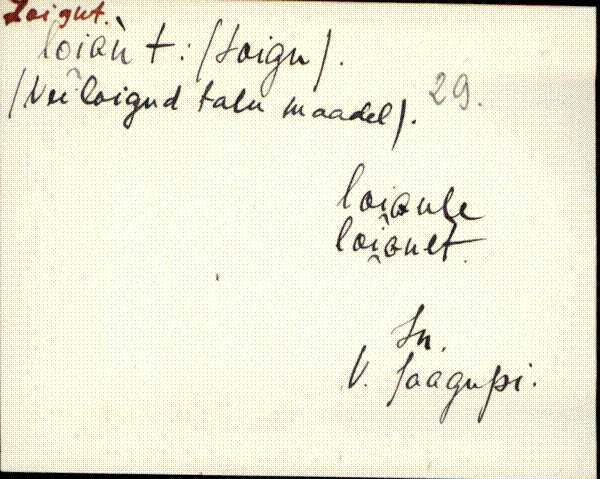 Loigut.
loi̯ań t: (Loigu).
(Vee loigud talu maadel). 29.
loi̯anle
loi̯anlt
Jn.
V. Jaagupi.